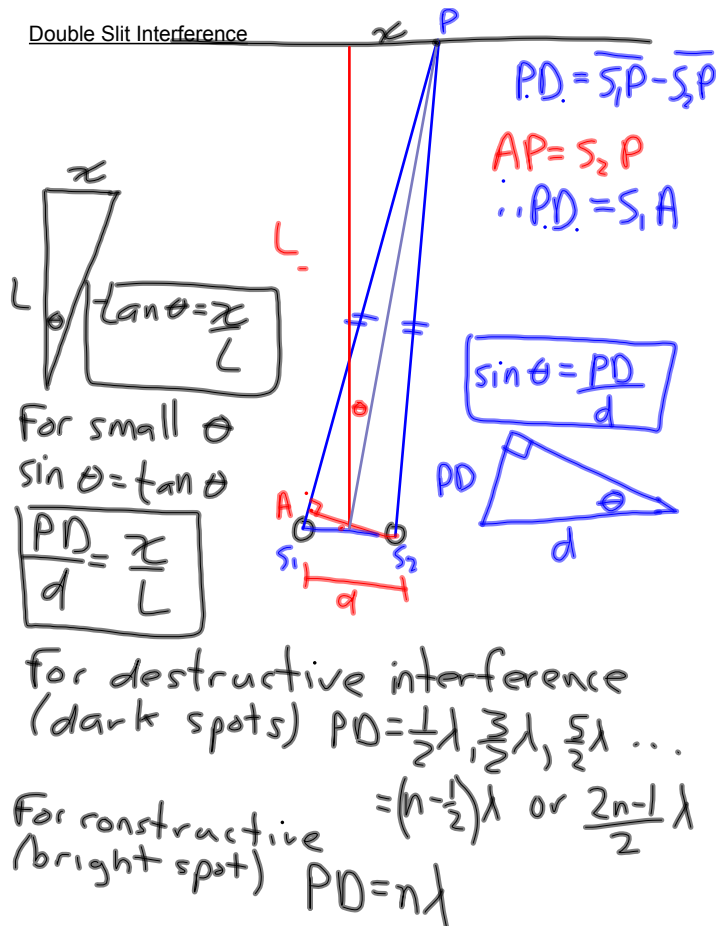 Double Slit Interference
x
P
P.D. = S₁P - S₂P
AP = S₂ P
∴ P.D. = S₁ A
x
L
θ
tan θ = x/L
L
θ
sin θ = PD/d
PD
θ
d
For small θ
sin θ = tan θ
PD/d = x/L
A
S₁
S₂
d
For destructive interference
(dark spots) PD = 1/2 λ, 3/2 λ, 5/2 λ ...
= (n - 1/2) λ or 2n-1/2 λ
For constructive
(bright spot) PD = nλ